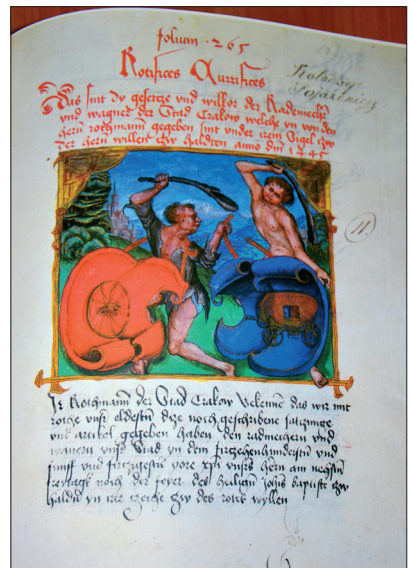 folium · 265
Rotifices Aurifices
Kołodzieje
Stojarników
Das sint dy gesetze und wilkor der Rademecher
und wagner der Stad Crakow welche yn von den
hern rothmann gegeben sint under irem sigel czw
der hern willen czw haldten anno dni 1445
11.
Ir Rothmann der Stad Crakow Bekennen das wir mit
rothe unsir eldestin dize noch geschribene satzunge
und artikel gegeben haben den radmechern und
wanern unsir Stad yn dem firczehenhundertsten und
funff und firczigsten yore xpi unsirs hern am nechsten
freitage noch der feyer des heiligen johis baptiste czw
haldin yn irer czeche czw des rotes wyllen